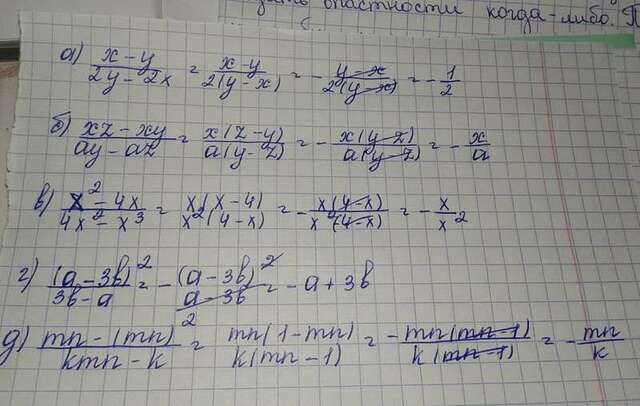 опастности когда-либо.
а) x - y / 2y - 2x = x - y / 2(y - x) = - y - x / 2(y - x) = - 1 / 2
б) xz - xy / ay - az = x(z - y) / a(y - z) = - x(y - z) / a(y - z) = - x / a
в) x² - 4x / 4x² - x³ = x(x - 4) / x²(4 - x) = - x(4 - x) / x²(4 - x) = - x / x²
г) (a - 3b)² / 3b - a = - (a - 3b)² / a - 3b = - a + 3b
2
д) mn - (mn) / kmn - k = mn(1 - mn) / k(mn - 1) = - mn(mn - 1) / k(mn - 1) = - mn / k